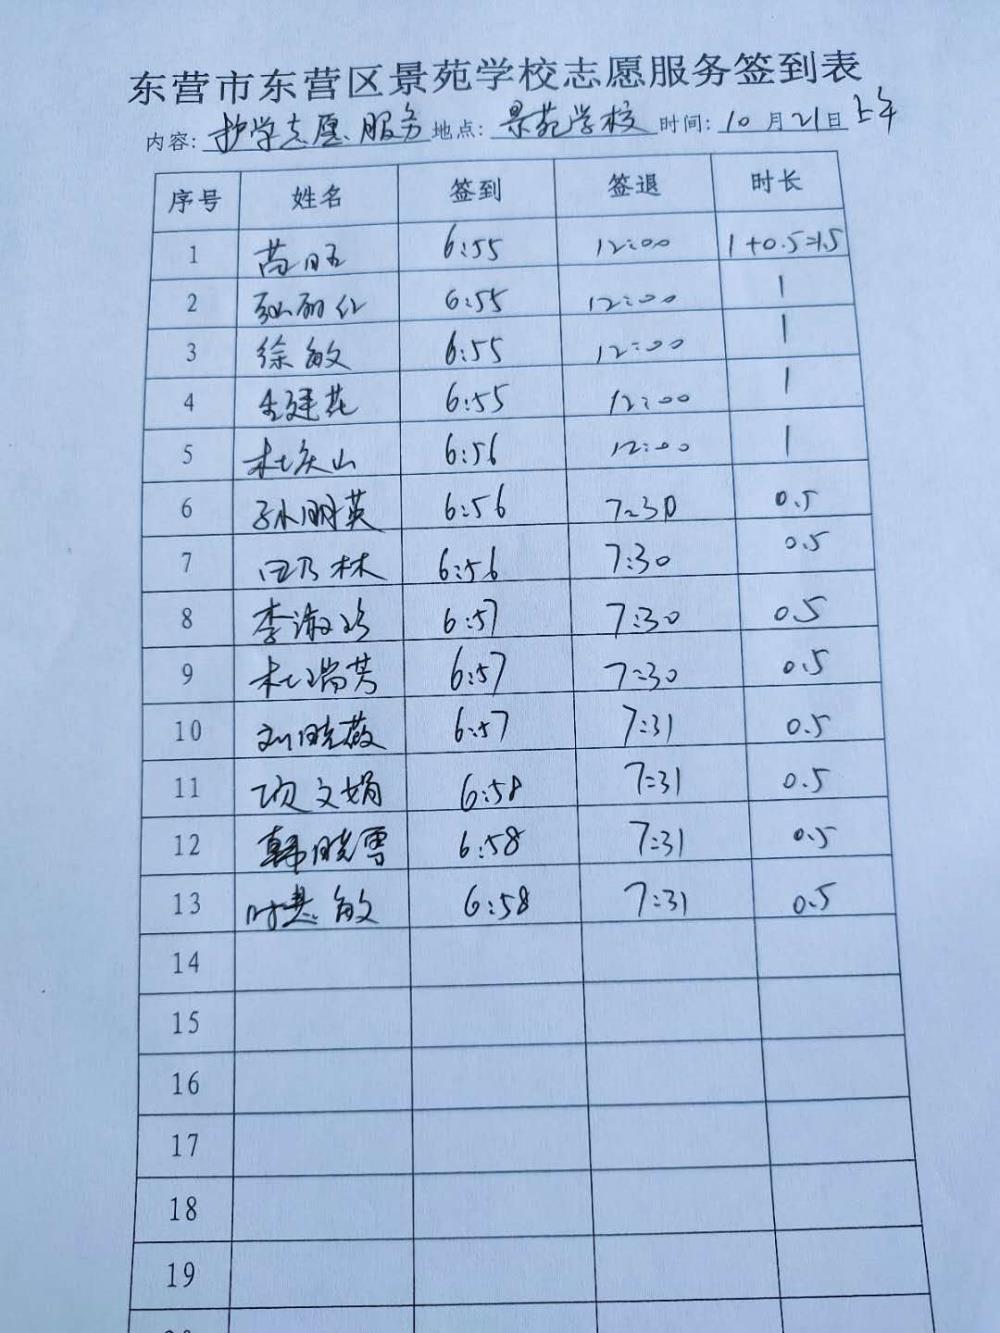 东营市东营区景苑学校志愿服务签到表
内容: 护学志愿服务 地点: 景苑学校 时间: 10月21日上午
序号 姓名 签到 签退 时长
1 6:55 12:00 1+0.5=1.5
2 6:55 12:00 1
3 徐敏 6:55 12:00 1
4 6:55 12:00 1
5 6:56 12:00 1
6 孙明英 6:56 7:30 0.5
7 田乃林 6:56 7:30 0.5
8 李淑珍 6:57 7:30 0.5
9 杜瑞芳 6:57 7:30 0.5
10 刘晓薇 6:57 7:31 0.5
11 项文娟 6:58 7:31 0.5
12 韩晓雪 6:58 7:31 0.5
13 时慧敏 6:58 7:31 0.5
14
15
16
17
18
19